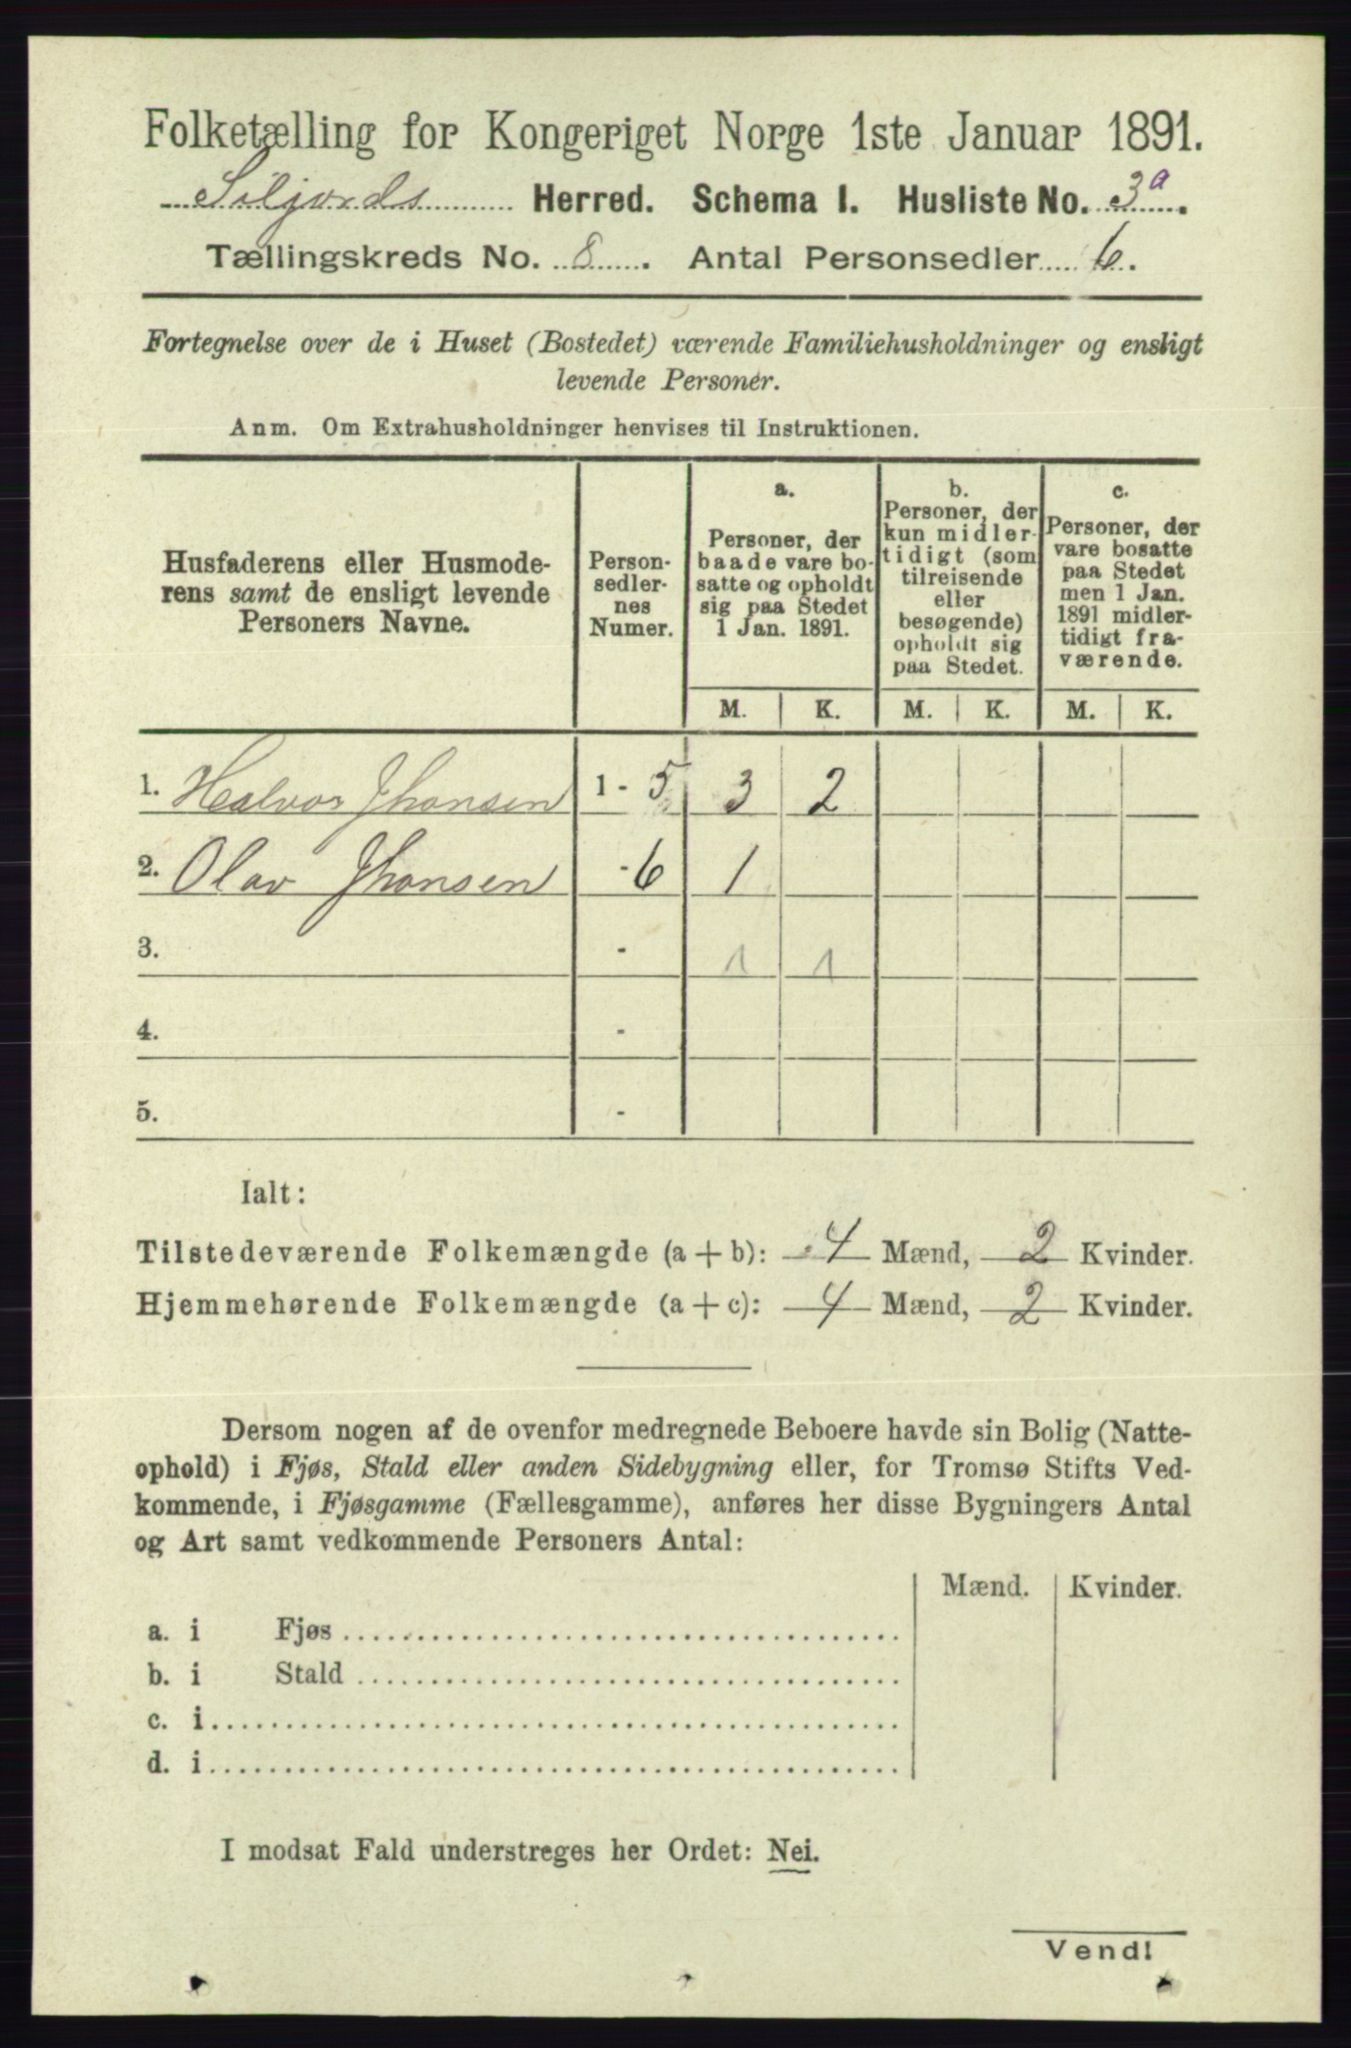 Folketælling for Kongeriget Norge 1ste Januar 1891.
Siljords Herred. Schema I. Husliste No. 3a.
Tællingskreds No. 8. Antal Personsedler 6.
Fortegnelse over de i Huset (Bostedet) værende Familiehusholdninger og ensligt
levende Personer.
Anm. Om Extrahusholdninger henvises til Instruktionen.
Husfaderens eller Husmode-
rens samt de ensligt levende
Personers Navne.
Person-
sedler-
nes
Numer.
a.
Personer, der
baade vare bo-
satte og opholdt
sig paa Stedet
1 Jan. 1891.
b.
Personer, der
kun midler-
tidigt (som
tilreisende
eller
besøgende)
opholdt sig
paa Stedet.
c.
Personer, der
vare bosatte
paa Stedet
men 1 Jan.
1891 midler-
tidigt fra-
værende.
M. K. M. K. M. K.
1. Halvor Jhansen 1 - 5 3 2
2. Olav Jhansen - 6 1
3. - 1 1
4. -
5. -
Ialt:
Tilstedeværende Folkemængde (a + b): 4 Mænd, 2 Kvinder.
Hjemmehørende Folkemængde (a + c): 4 Mænd, 2 Kvinder.
Dersom nogen af de ovenfor medregnede Beboere havde sin Bolig (Natte-
ophold) i Fjøs, Stald eller anden Sidebygning eller, for Tromsø Stifts Ved-
kommende, i Fjøsgamme (Fællesgamme), anføres her disse Bygningers Antal
og Art samt vedkommende Personers Antal:
Mænd. Kvinder.
a. i Fjøs
b. i Stald
c. i
d. i
I modsat Fald understreges her Ordet: Nei.
Vend!